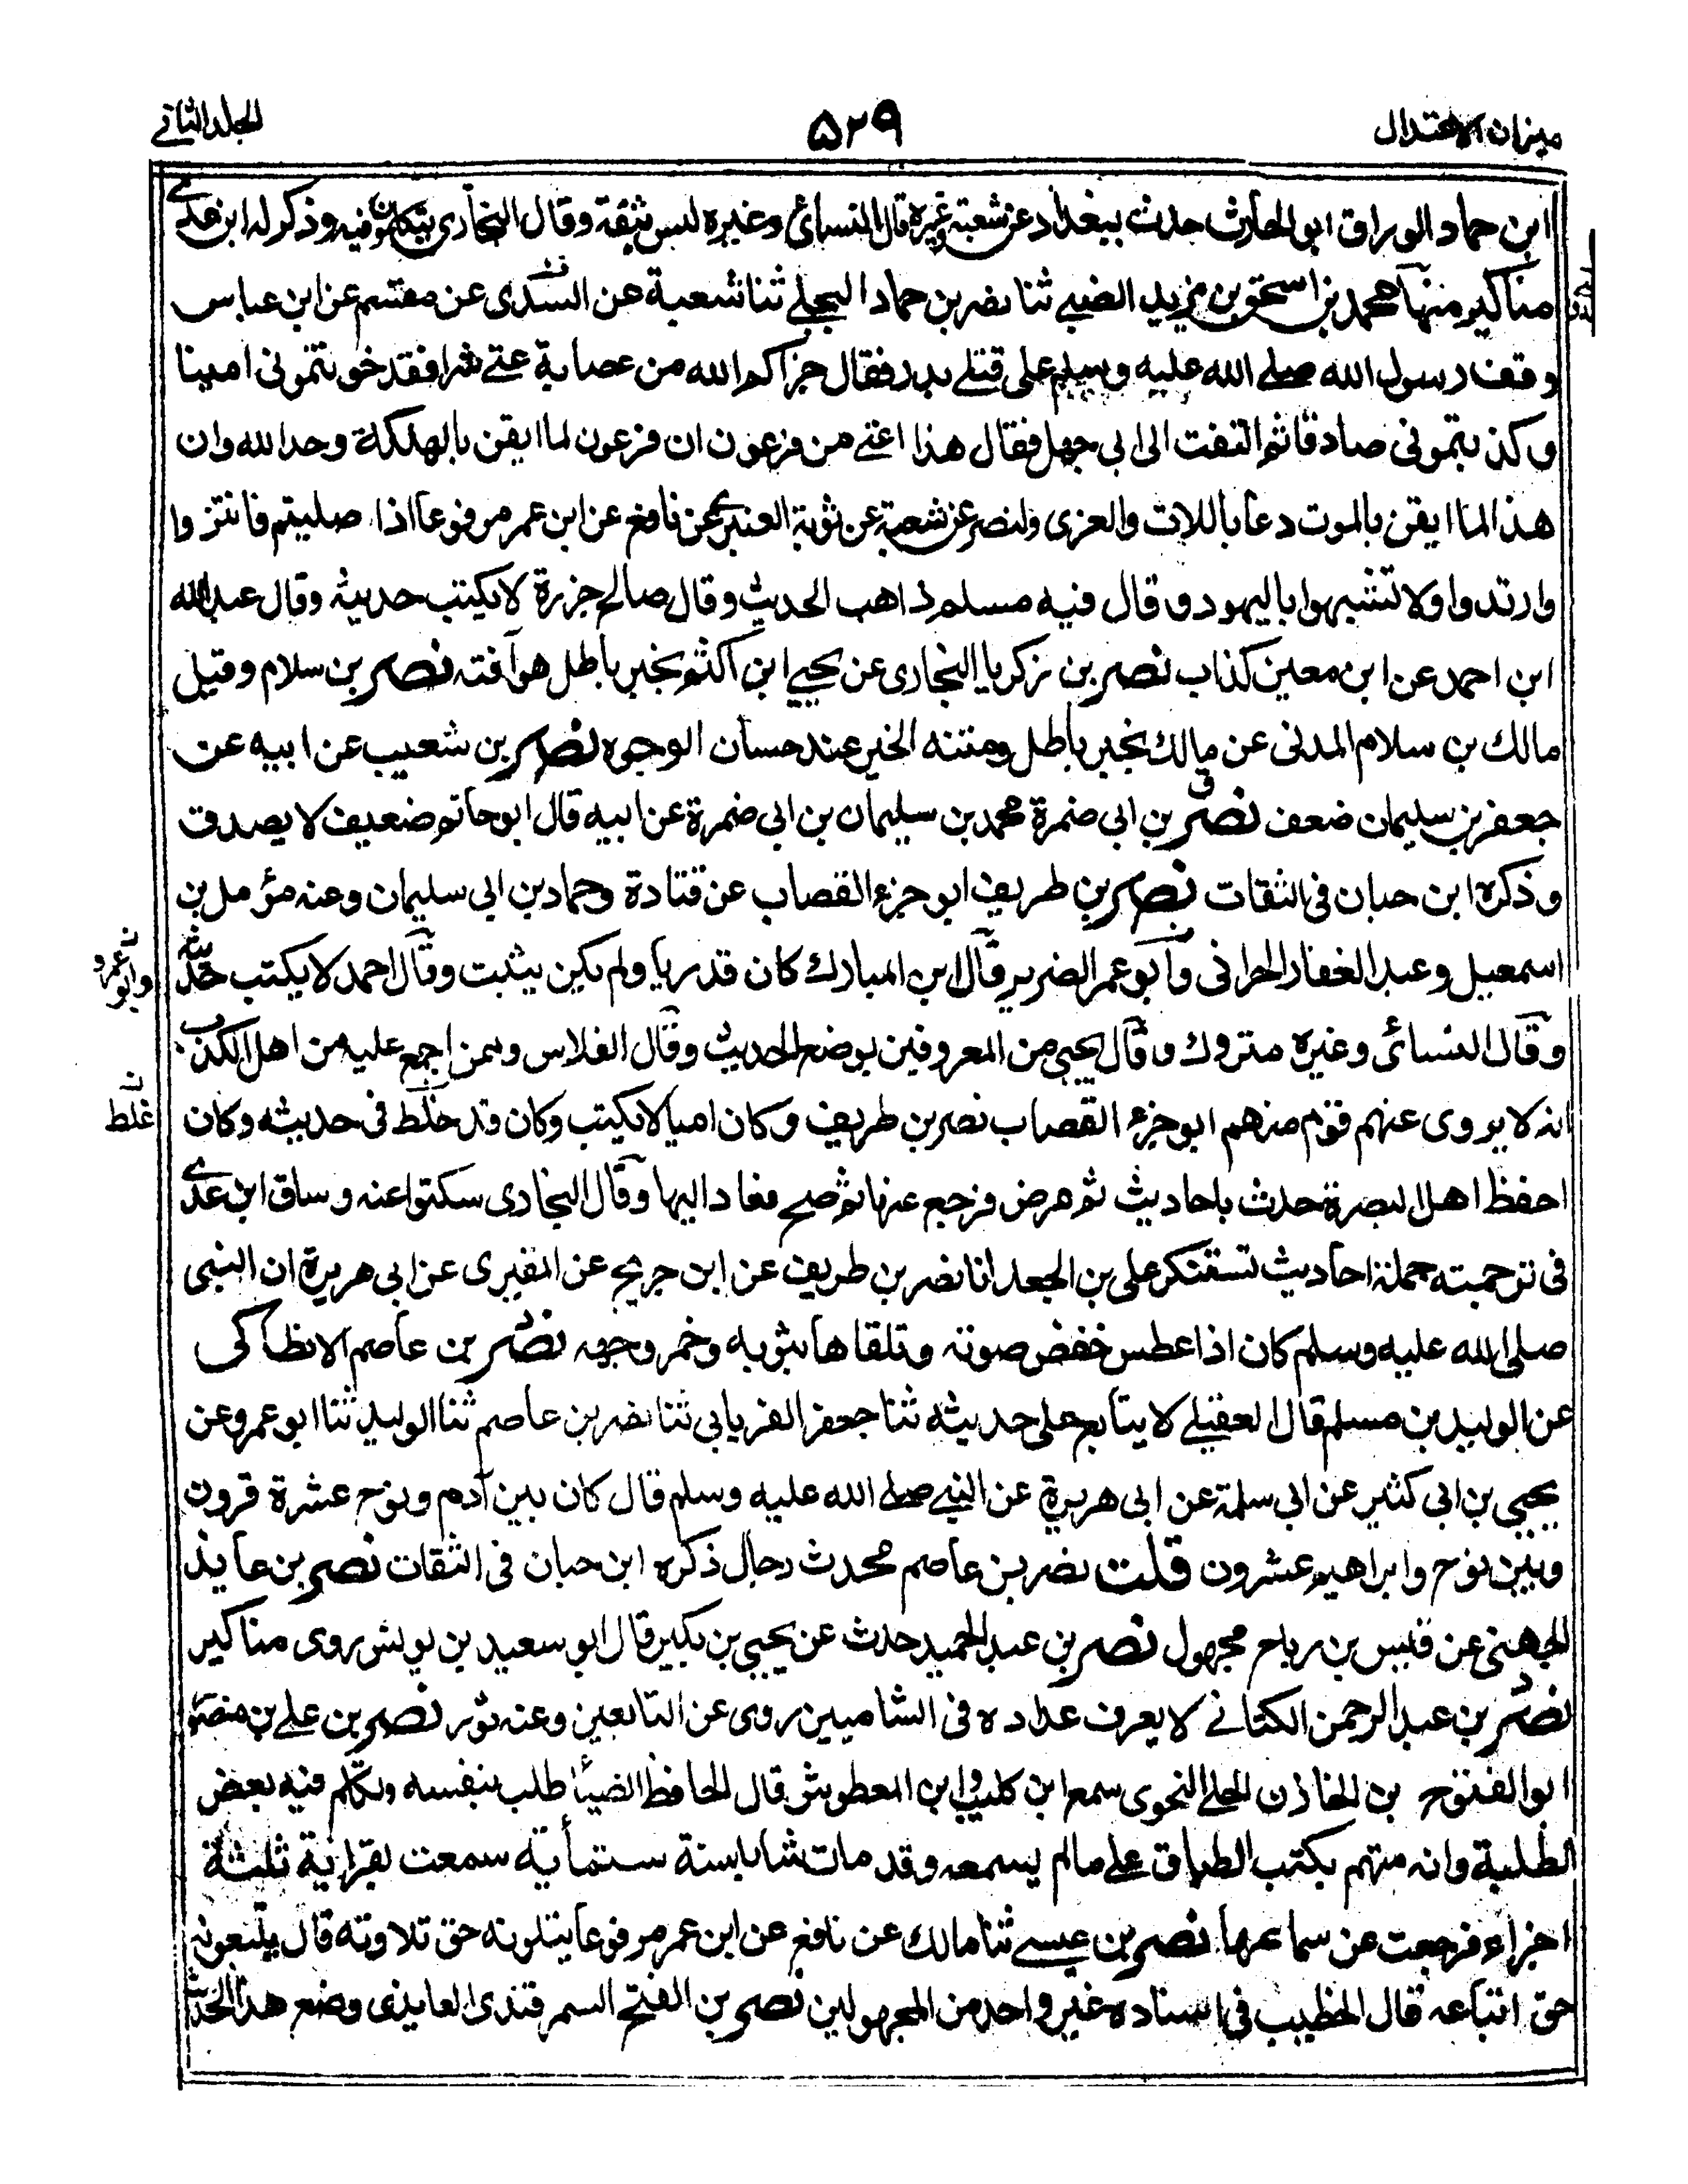 ميزان الاعتدال
۵۲۹
المجلد الثاني
ابن حماد الوراق ابو الحارث حدث ببغداد عن شعبة وغيره قال النسائي وغيره ليس بثقة وقال البخاري يتكلمون فيه وذكر له ابن عدي
مناكير منها محمد بن اسحق بن يزيد الضبي ثنا نصر بن حماد البجلي ثنا شعبة عن السدى عن مقسم عن ابن عباس
وقف رسول الله صلى الله عليه وسلم على قتلى بدر فقال جزاكم الله من عصابة عني شرا فقد خونتموني امينا
وكذبتموني صادقا ثم التفت الى ابي جهل فقال هذا اعتى من فرعون ان فرعون لما ايقن بالهلكة وحد الله وان
هذا لما ايقن بالموت دعا باللات والعزى ولنصر عن شعبة عن توبة العنبري عن نافع عن ابن عمر مرفوعا اذا صليتم فاتزروا
وارتدوا ولا تشبهوا باليهود ق وقال فيه مسلم ذاهب الحديث وقال صالح جزرة لا يكتب حديثه وقال عبد الله
ابن احمد عن ابن معين كذاب نصر بن زكريا البخاري عن يحيى ابن اكثم بخبر باطل هو آفته نصر بن سلام وقيل
مالك بن سلام المدنى عن مالك بخبر باطل ومتنه الخير عند حسان الوجوه نصر بن شعيب عن ابيه عن
جعفر بن سليمان ضعف نصر بن ابي ضمرة محمد بن سليمان بن ابي ضمرة عن ابيه قال ابو حاتم ضعيف لا يصدق
وذكره ابن حبان فى الثقات نصر بن طريف ابو جزء القصاب عن قتادة وحماد بن ابي سليمان وعنه مؤمل بن
اسمعيل وعبد الغفار الحرانى وابو عمر الضرير قال ابن المبارك كان قدريا ولم يكن يثبت وقال احمد لا يكتب حديثه
وابو عمرو
وقال النسائى وغيره متروك وقال يحيى من المعروفين بوضع الحديث وقال الفلاس وممن اجمع عليه من اهل الكذب
انه لا يروى عنهم قوم منهم ابو جزء القصاب نصر بن طريف وكان اميا لا يكتب وكان قد خلط فى حديثه وكان
غلط
احفظ اهل البصرة حدث باحاديث ثم مرض فرجع عنها ثم صح فعاد اليها وقال البخارى سكتوا عنه وساق ابن عدي
فى ترجمته جملة احاديث تستنكر على بن الجعد انا نصر بن طريف عن ابن جريج عن المقبرى عن ابي هريرة ان النبى
صلى الله عليه وسلم كان اذا عطس خفض صوته وتلقاها بثوبه وخمر وجهه نصر بن عاصم الانطاكى
عن الوليد بن مسلم قال العقيلي لا يتابع على حديثه ثنا جعفر الفريابي ثنا نصر بن عاصم ثنا الوليد ثنا ابو عمرو عن
يحيى بن ابى كثير عن ابي سلمة عن ابى هريرة عن النبي صلى الله عليه وسلم قال كان بين آدم ونوح عشرة قرون
وبين نوح وابراهيم عشرون قلت نصر بن عاصم محدث رحال ذكره ابن حبان فى الثقات نصر بن عايذ
الجهضمى عن قيس بن رباح مجهول نصر بن عبد الحميد حدث عن يحيى بن بكير قال ابو سعيد بن يونس روى مناكير
نصر بن عبد الرحمن الكنانے لا يعرف عداده فى الشاميين روى عن التابعين وعنه ثور نصر بن علي بن منصور
ابو الفتوح بن الخازن الحلي النحوى سمع ابن كليب وابن المعطوش قال الحافظ الضياء طلب بنفسه وتكلم فيه بعض
الطلبة وانه متهم يكتب الطباق على مالم يسمعه وقد مات شابا سنة ستمأية سمعت بقراءته ثلثة
اجزاء فرجعت عن سماعها نصر بن عيسى ثنا مالك عن نافع عن ابن عمر مرفوعا يتلونه حق تلاوته قال يتبعونه
حق اتباعه قال الخطيب فى اسناده غير واحد من المجهولين نصر بن الفتح السمرقندى العايذى وضع هذا الحديث